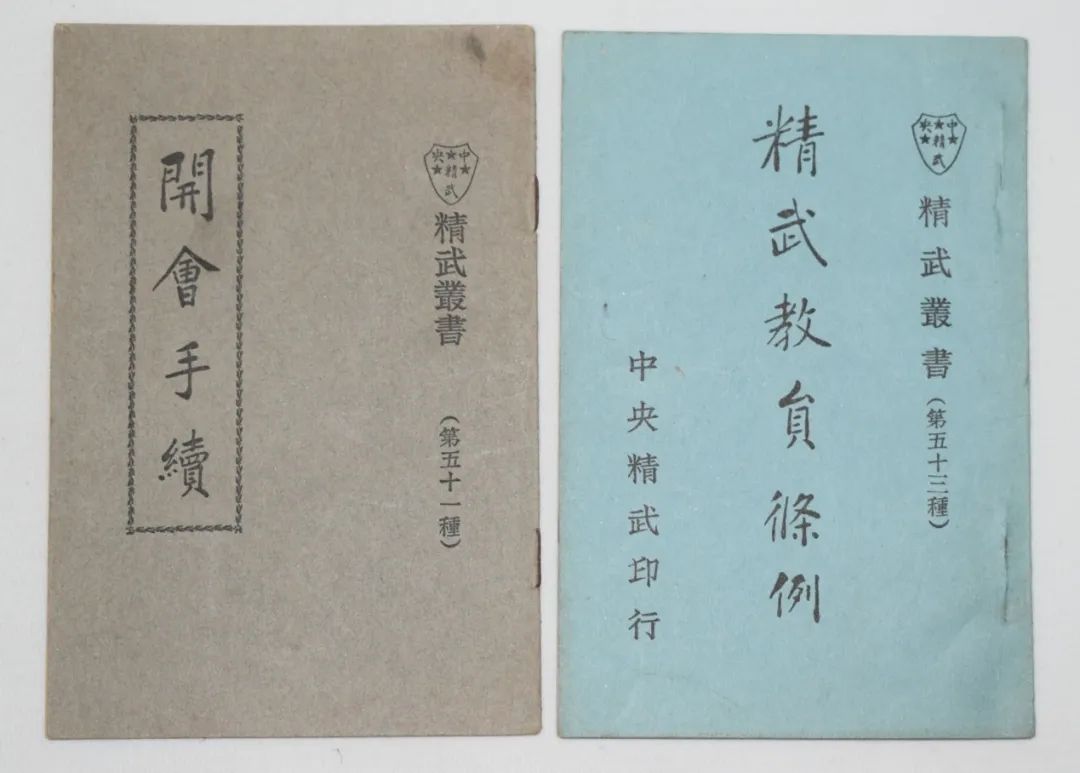 中央精武
精武叢書（第五十一種）
開會手續
中央精武
精武叢書（第五十三種）
精武教員條例
中央精武印行